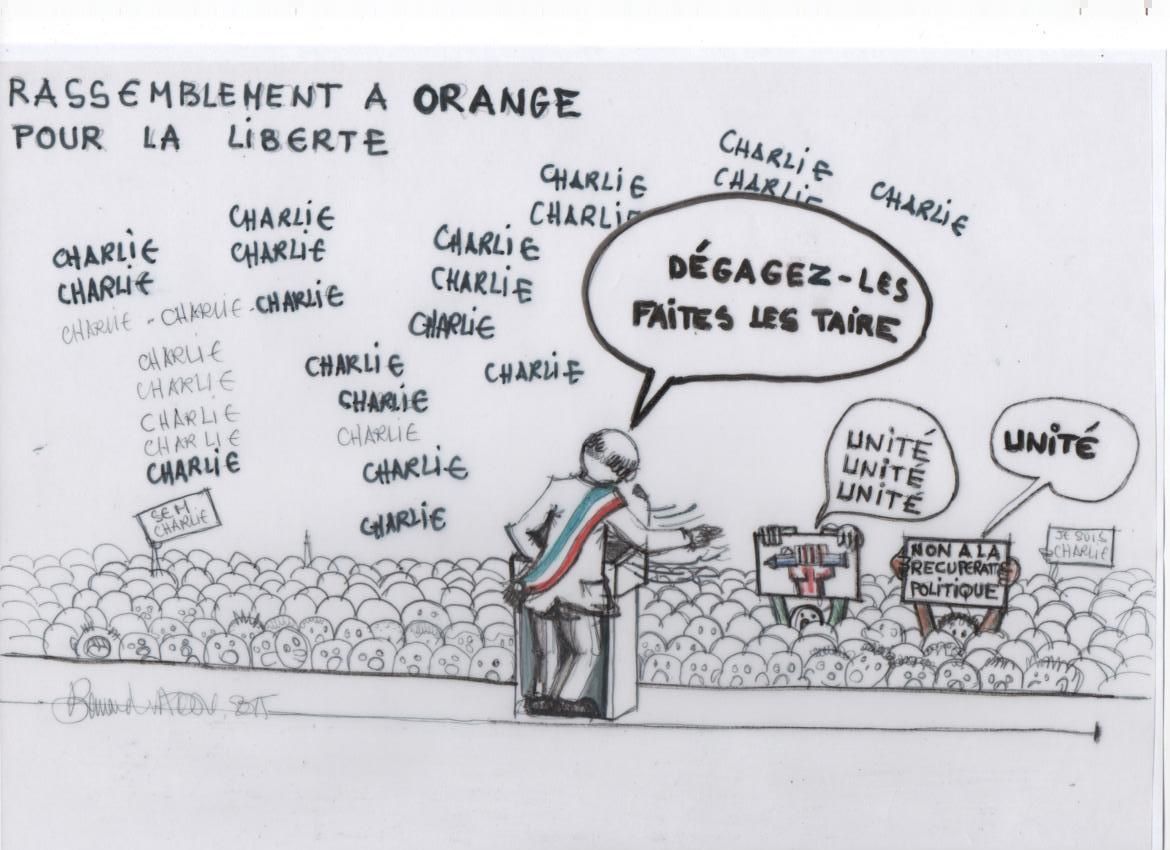 RASSEMBLEMENT A ORANGE
POUR LA LIBERTE
CHARLIE
CHARLIE
CHARLIE
CHARLIE
CHARLIE
CHARLIE
CHARLIE
CHARLIE
CHARLIE
CHARLIE
CHARLIE
CHARLIE - CHARLIE - CHARLIE
CHARLIE
CHARLIE
CHARLIE
CHARLIE
CHARLIE
CHARLIE
CHARLIE
CHARLIE
CHARLIE
CHARLIE
CHARLIE
CHARLIE
CHARLIE
DÉGAGEZ-LES
FAITES LES TAIRE
UNITÉ
UNITÉ
UNITÉ
UNITÉ
CHARLIE
NON A LA
RECUPERATI
POLITIQUE
JE SUIS
CHARLIE